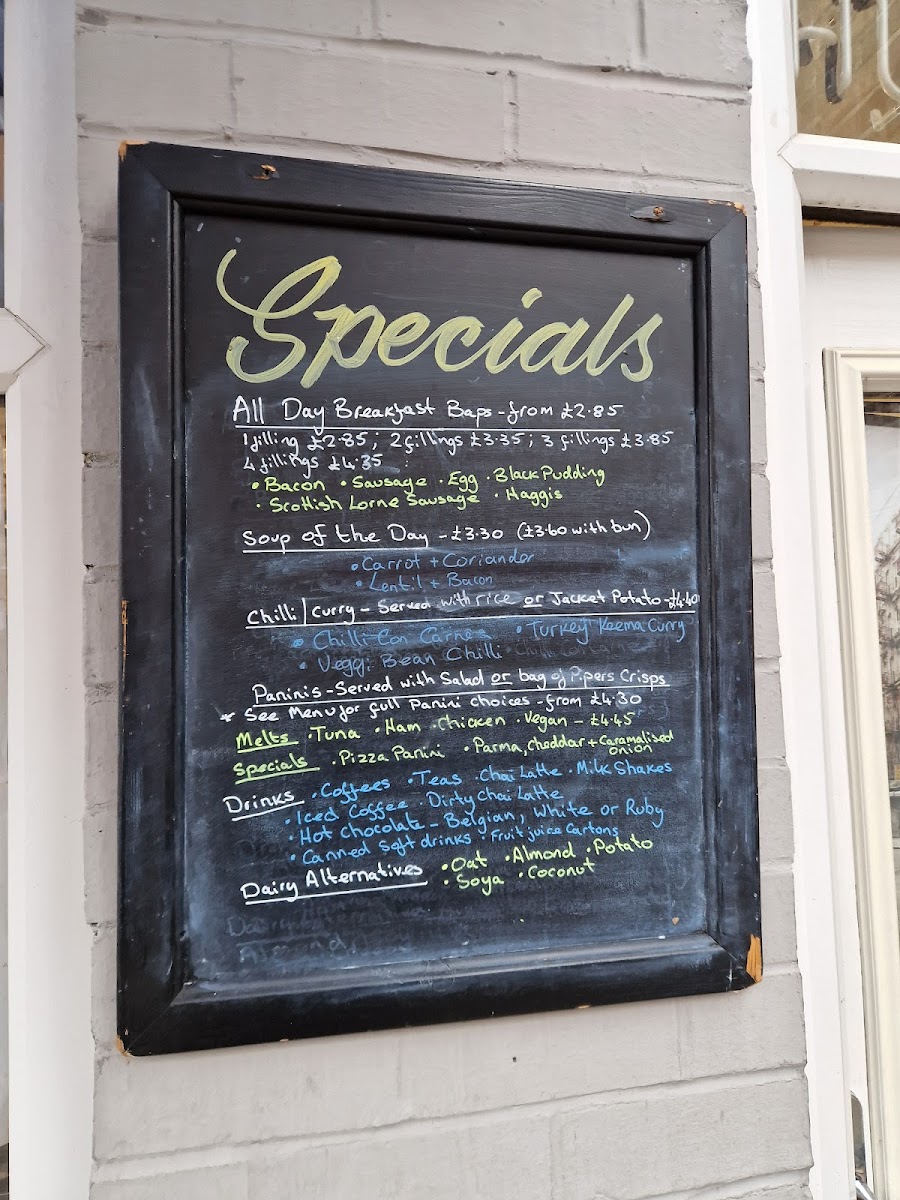 Specials
All Day Breakfast Baps - from £2.85
1 filling £2.85; 2 fillings £3.35; 3 fillings £3.85
4 fillings £4.35
• Bacon • Sausage • Egg • Black Pudding
• Scottish Lorne Sausage • Haggis
Soup of the Day - £3.30 (£3.60 with bun)
• Carrot + Coriander
• Lentil + Bacon
Chilli/Curry - Served with rice or Jacket Potato - £4.40
• Chilli Con Carne • Turkey Keema Curry
• Veggi Bean Chilli
Paninis - Served with Salad or bag of Pipers Crisps
* See Menu for full Panini choices - from £4.30
Melts • Tuna • Ham • Chicken • Vegan - £4.45
Specials • Pizza Panini • Parma, cheddar + Caramalised
onion
Drinks • Coffees • Teas • Chai Latte • Milk Shakes
• Iced Coffee • Dirty Chai Latte
• Hot chocolate - Belgian, White or Ruby
• Canned Soft drinks • Fruit juice Cartons
Dairy Alternatives • Oat • Almond • Potato
• Soya • Coconut